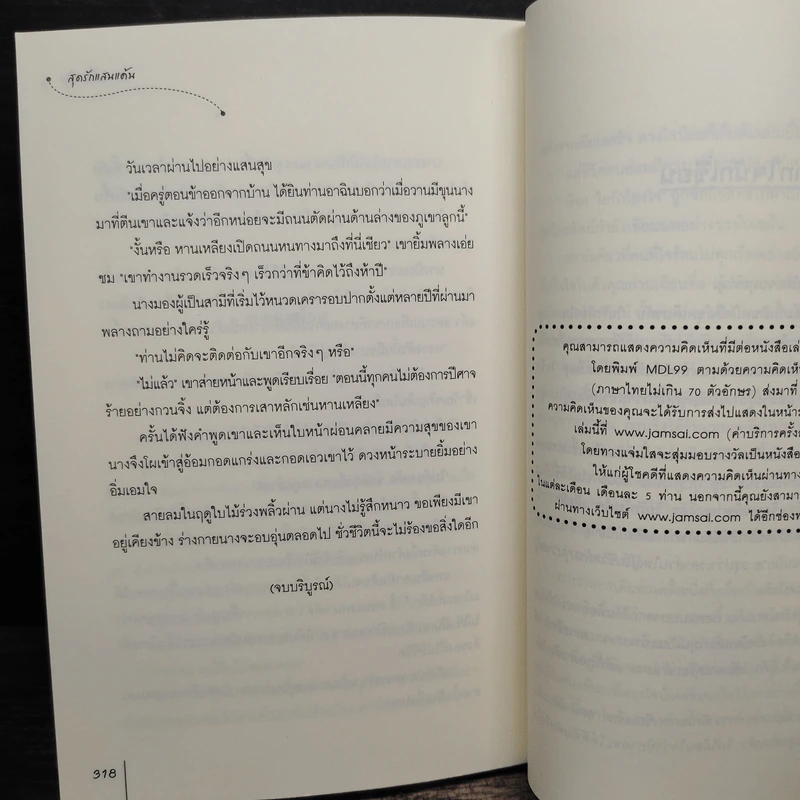 สุดรักแสนแค้น
วันเวลาผ่านไปอย่างแสนสุข
"เมื่อครู่ตอนข้าออกจากบ้าน ได้ยินท่านอาฉินบอกว่าเมื่อวานมีขุนนาง
มาที่ตีนเขาและแจ้งว่าอีกหน่อยจะมีถนนตัดผ่านด้านล่างของภูเขาลูกนี้"
"งั้นหรือ หานเหลียงเปิดถนนหนทางมาถึงที่นี่เชียว" เขายิ้มพลางเอ่ย
ชม "เขาทำงานรวดเร็วจริงๆ เร็วกว่าที่ข้าคิดไว้ถึงห้าปี"
นางมองผู้เป็นสามีที่เริ่มไว้หนวดเครารอบปากตั้งแต่หลายปีที่ผ่านมา
พลางถามอย่างใคร่รู้
"ท่านไม่คิดจะติดต่อกับเขาอีกจริงๆ หรือ"
"ไม่แล้ว" เขาส่ายหน้าและพูดเรียบเรื่อย "ตอนนี้ทุกคนไม่ต้องการปีศาจ
ร้ายอย่างกวนจิ้ง แต่ต้องการเสาหลักเช่นหานเหลียง"
ครั้นได้ฟังคำพูดเขาและเห็นใบหน้าผ่อนคลายมีความสุขของเขา
นางจึงโผเข้าสู่อ้อมกอดแกร่งและกอดเอวเขาไว้ ดวงหน้าระบายยิ้มอย่าง
อิ่มเอมใจ
สายลมในฤดูใบไม้ร่วงพลิ้วผ่าน แต่นางไม่รู้สึกหนาว ขอเพียงมีเขา
อยู่เคียงข้าง ร่างกายนางจะอบอุ่นตลอดไป ชั่วชีวิตนี้จะไม่ร้องขอสิ่งใดอีก
(จบบริบูรณ์)
318
คุณสามารถแสดงความคิดเห็นที่มีต่อหนังสือเล่
โดยพิมพ์ MDL99 ตามด้วยความคิดเห็
(ภาษาไทยไม่เกิน 70 ตัวอักษร) ส่งมาที่
ความคิดเห็นของคุณจะได้รับการส่งไปแสดงในหน้า
เล่มนี้ที่ www.jamsai.com (ค่าบริการครั้ง
โดยทางแจ่มใสจะสุ่มมอบรางวัลเป็นหนังสือ
ให้แก่ผู้โชคดีที่แสดงความคิดเห็นผ่านทาง
ในแต่ละเดือน เดือนละ 5 ท่าน นอกจากนี้คุณยังสามา
ผ่านทางเว็บไซต์ www.jamsai.com ได้อีกช่องท